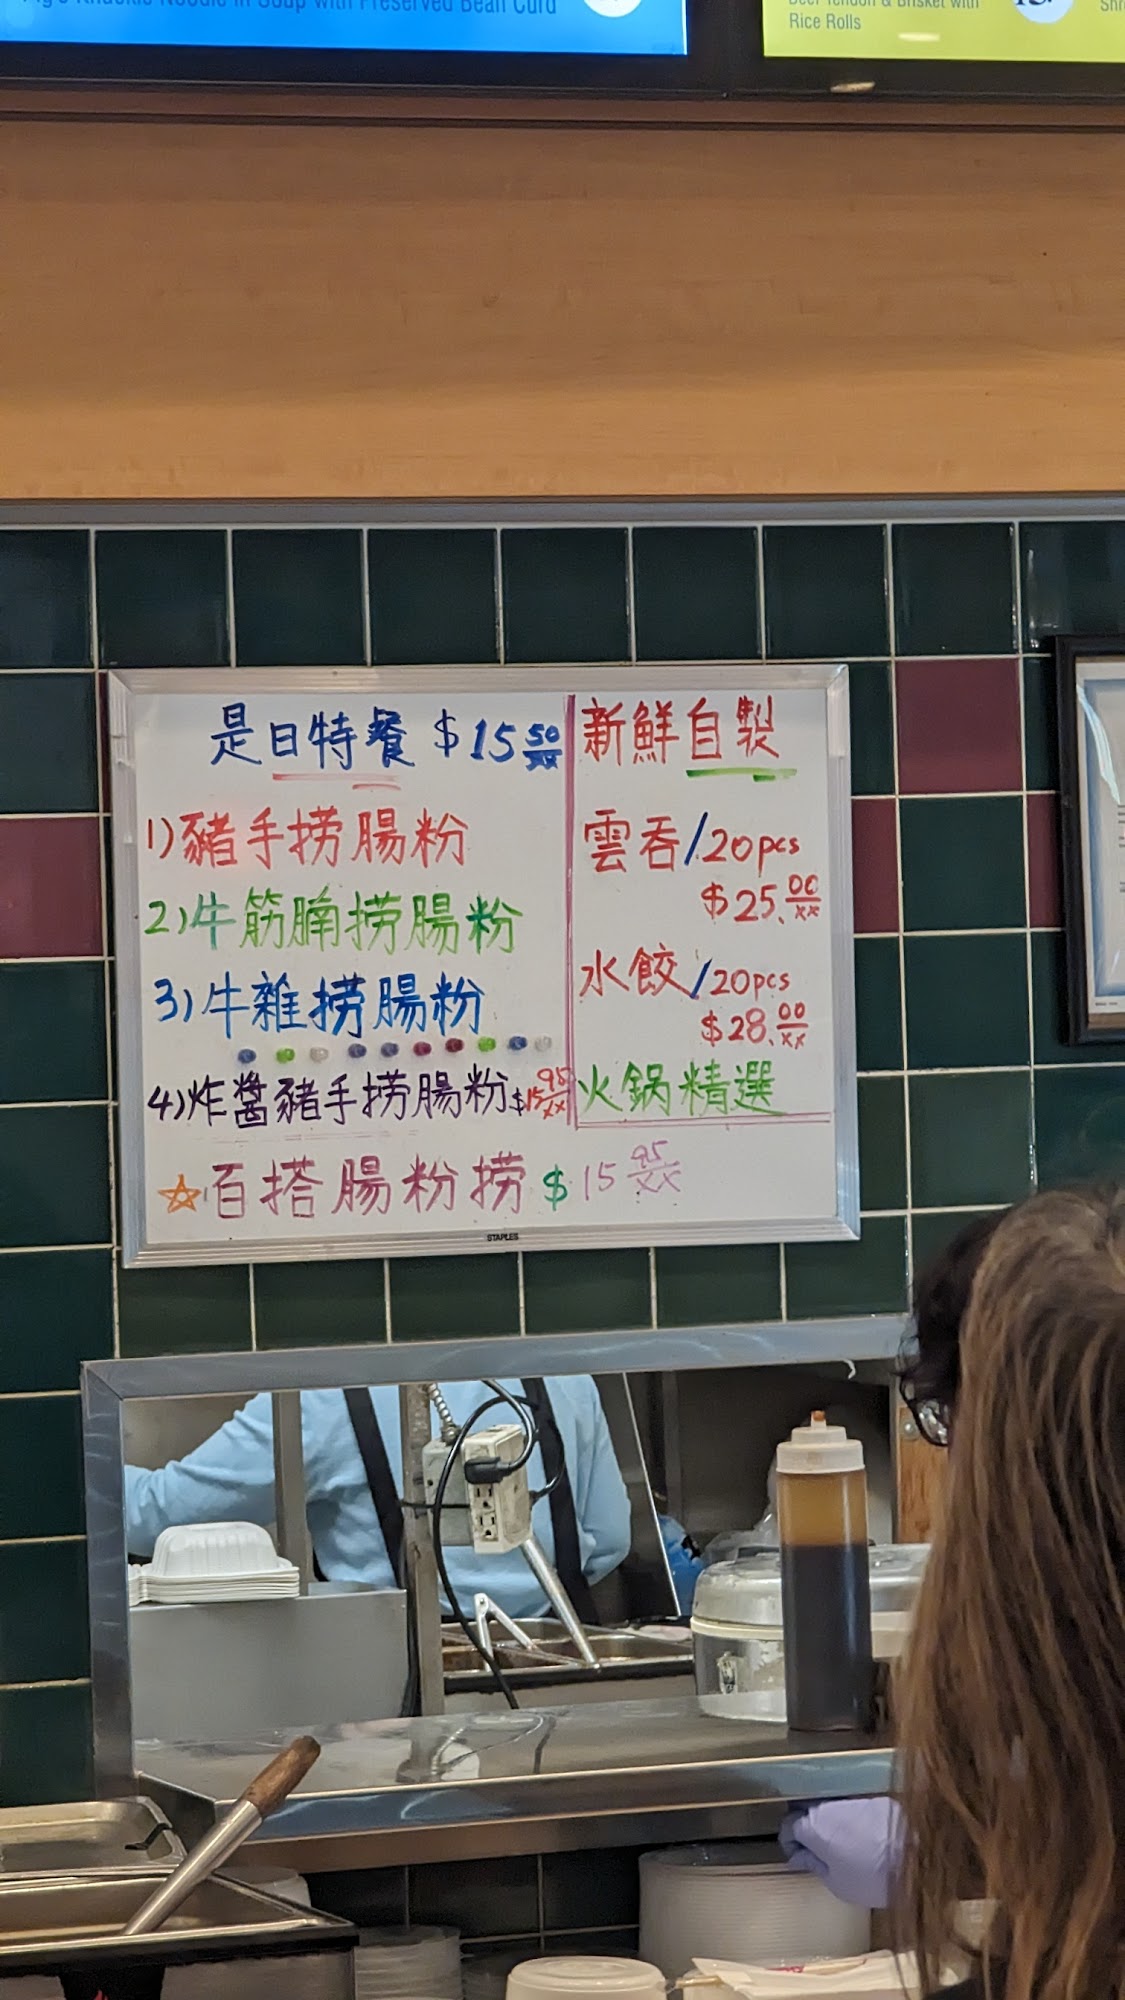 Pig's Knuckle Noodle in Soup with Preserved Bean Curd
Beef Tendon & Brisket with
Rice Rolls
是日特餐 $15 50/xx
1) 豬手捞腸粉
2) 牛筋腩捞腸粉
3) 牛雜捞腸粉
4) 炸醬豬手捞腸粉 $15 95/xx
☆百搭腸粉捞 $15 95/xx
新鮮自製
雲吞/20pcs
$25.00/xx
水餃/20pcs
$28.00/xx
火鍋精選
STAPLES